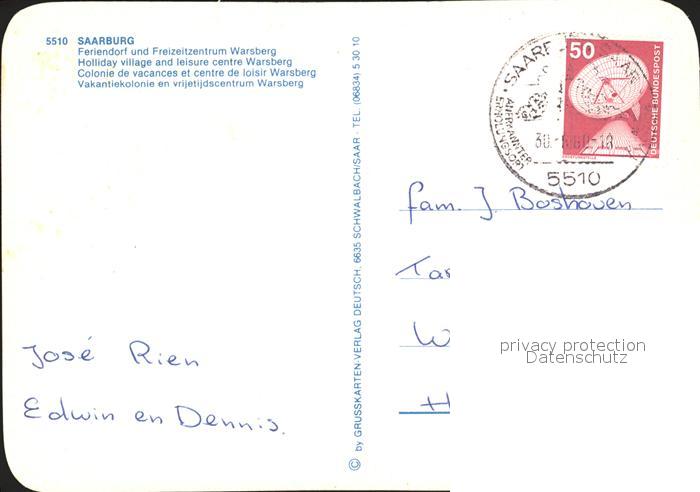 5510 SAARBURG
Feriendorf und Freizeitzentrum Warsberg
Holliday village and leisure centre Warsberg
Colonie de vacances et centre de loisir Warsberg
Vakantiekolonie en vrijetijdscentrum Warsberg
José Rien
Edwin en Dennis.
© by GRUSSKARTEN-VERLAG DEUTSCH, 6635 SCHWALBACH/SAAR · TEL. (06834) 5 30 10
50
DEUTSCHE BUNDESPOST
ANERKANNTER
ERHOLUNGSORT
5510
fam. J. Boshoven
privacy protection
Datenschutz